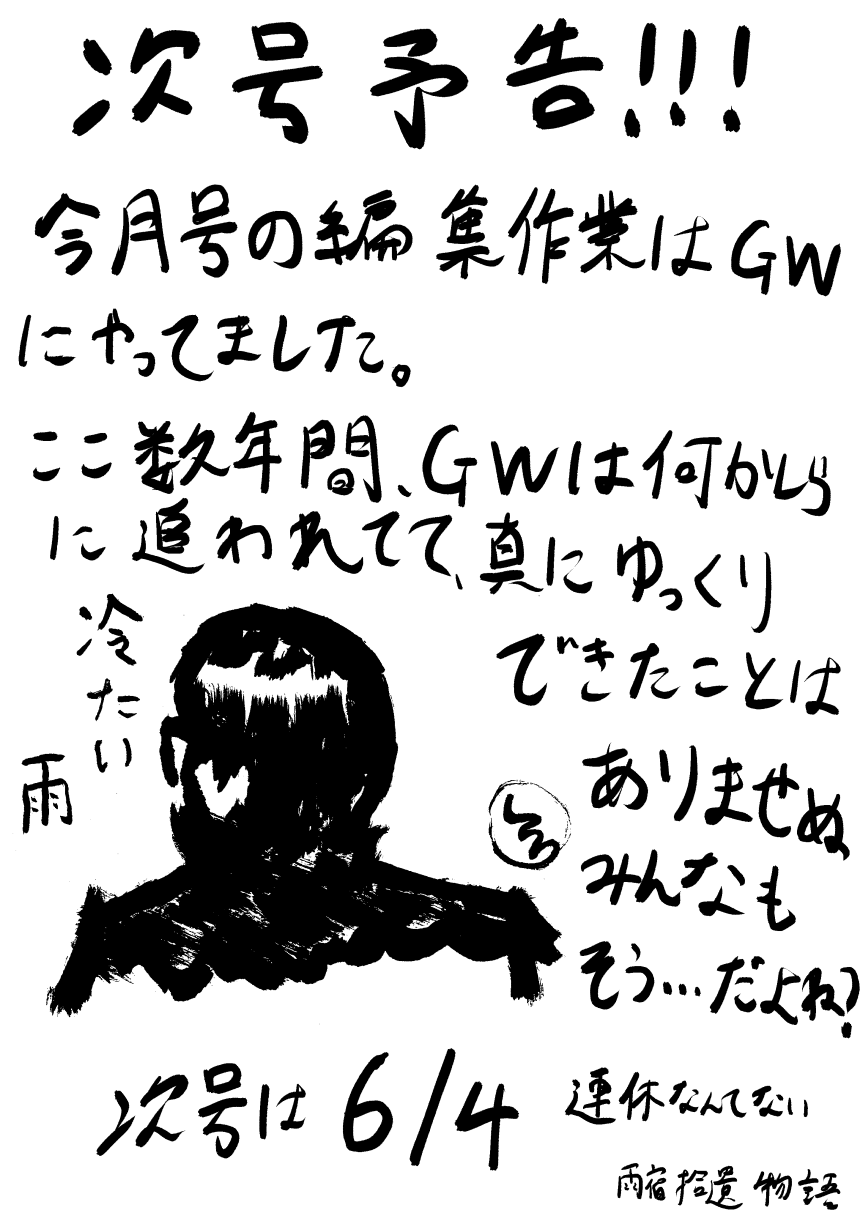 次号予告!!!
今月号の編集作業はGW
にやってました。
ここ数年間、GWは何かしら
に追われてて、真にゆっくり
できたことは
ありませぬ
みんなも
そう…だよね?
冷たい
雨
次号は 6/4
連休なんてない
雨宿拾遺物語